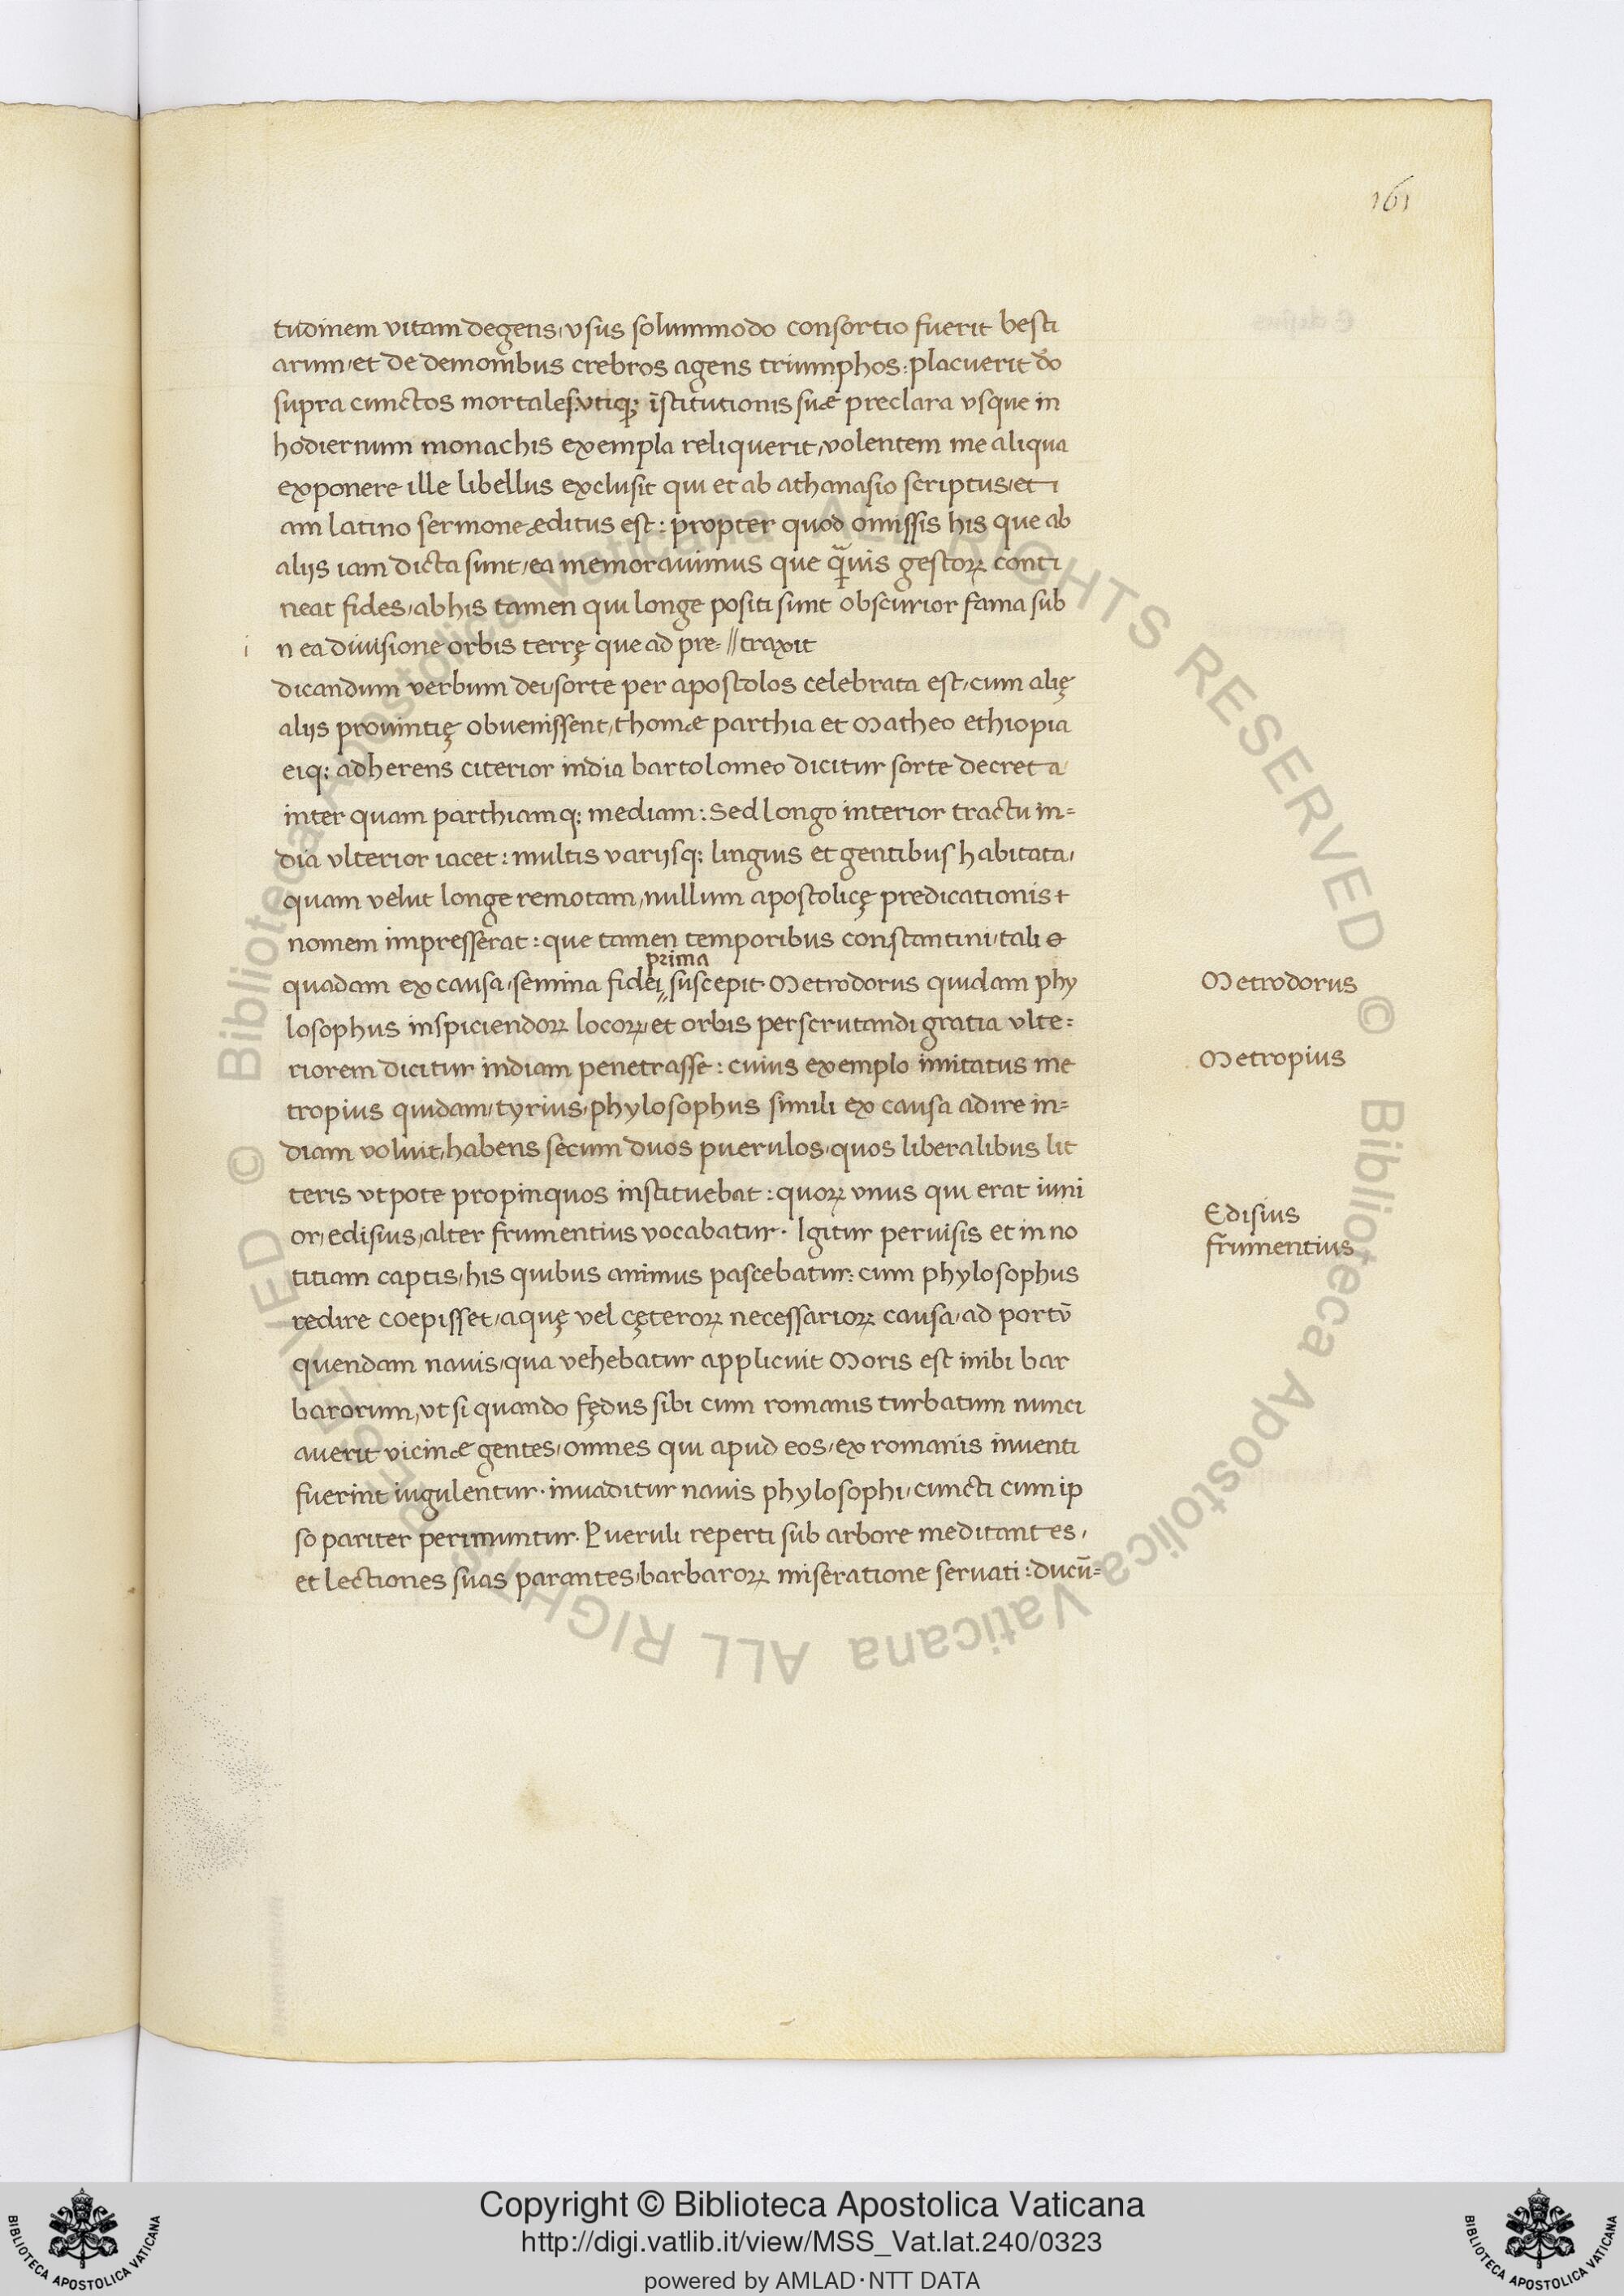 161
tudinem vitam degens, vsus solummodo consortio fuerit besti
arum, et de demonibus crebros agens triumphos: placuerit dō
supra cunctos mortales: vtiq; īstitutionis suæ preclara vsque in
hodiernum monachis exempla reliquerit, volentem me aliqua
exponere ille libellus exclusit qui et ab athanasio scriptus, et i
am latino sermone æditus est: propter quod omissis his que ab
alijs iam dicta sunt, ea memoravimus que q̃uis gestoꝝ conti
neat fides, ab his tamen qui longe positi sunt obscurior fama sub
i n ea diuisione orbis terrę que ad pre- // traxit
dicandum verbum dei, sorte per apostolos celebrata est, cum alię
alijs prouintię obvenissent, thomæ parthia et Matheo ethiopia
eiq: adherens citerior india bartolomeo dicitur sorte decreta
inter quam parthiamq: mediam: Sed longo interior tractu in=
dia vlterior iacet: multis varijsq: linguis et gentibus habitata,
quam velut longe remotam, nullum apostolicę predicationis +
nomem impresserat: que tamen temporibus constantini, tali &
quadam ex causa, semina fidei prima suscepit. Metrodorus quidam phy
losophus inspiciendoꝝ locoꝝ, et orbis perscrutandi gratia vlte=
riorem dicitur indiam penetrasse: cuius exemplo imitatus me
tropius quidam, tyrius, phylosophus simili ex causa adire in=
diam voluit, habens secum duos puerulos, quos liberalibus lit
teris vtpote propinquos instituebat: quoꝝ vnus qui erat iuni
or, edisius, alter frumentius vocabatur. Igitur peruisis et in no
titiam captis, his quibus animus pascebatur: cum phylosophus
redire coepisset, aquę vel cęteroꝝ necessarioꝝ causa, ad portū
quendam nauis, qua vehebatur applicuit Moris est inibi bar
barorum, vt si quando fędus sibi cum romanis turbatum nunci
auerit vicinæ gentes, omnes qui apud eos, ex romanis inuenti
fuerint iugulentur. inuaditur nauis phylosophi, cuncti cum ip
so pariter perimuntur. Pueruli reperti sub arbore meditantes,
et lectiones suas parantes, barbaroꝝ miseratione seruati: ducū=
Metrodorus
Metropius
Edisius
frumentius
© Biblioteca Apostolica Vaticana ALL RIGHTS RESERVED © Biblioteca Apostolica Vaticana ALL RIGHTS RESERVED
Copyright © Biblioteca Apostolica Vaticana
http://digi.vatlib.it/view/MSS_Vat.lat.240/0323
powered by AMLAD·NTT DATA
BIBLIOTECA APOSTOLICA VATICANA
BIBLIOTECA APOSTOLICA VATICANA